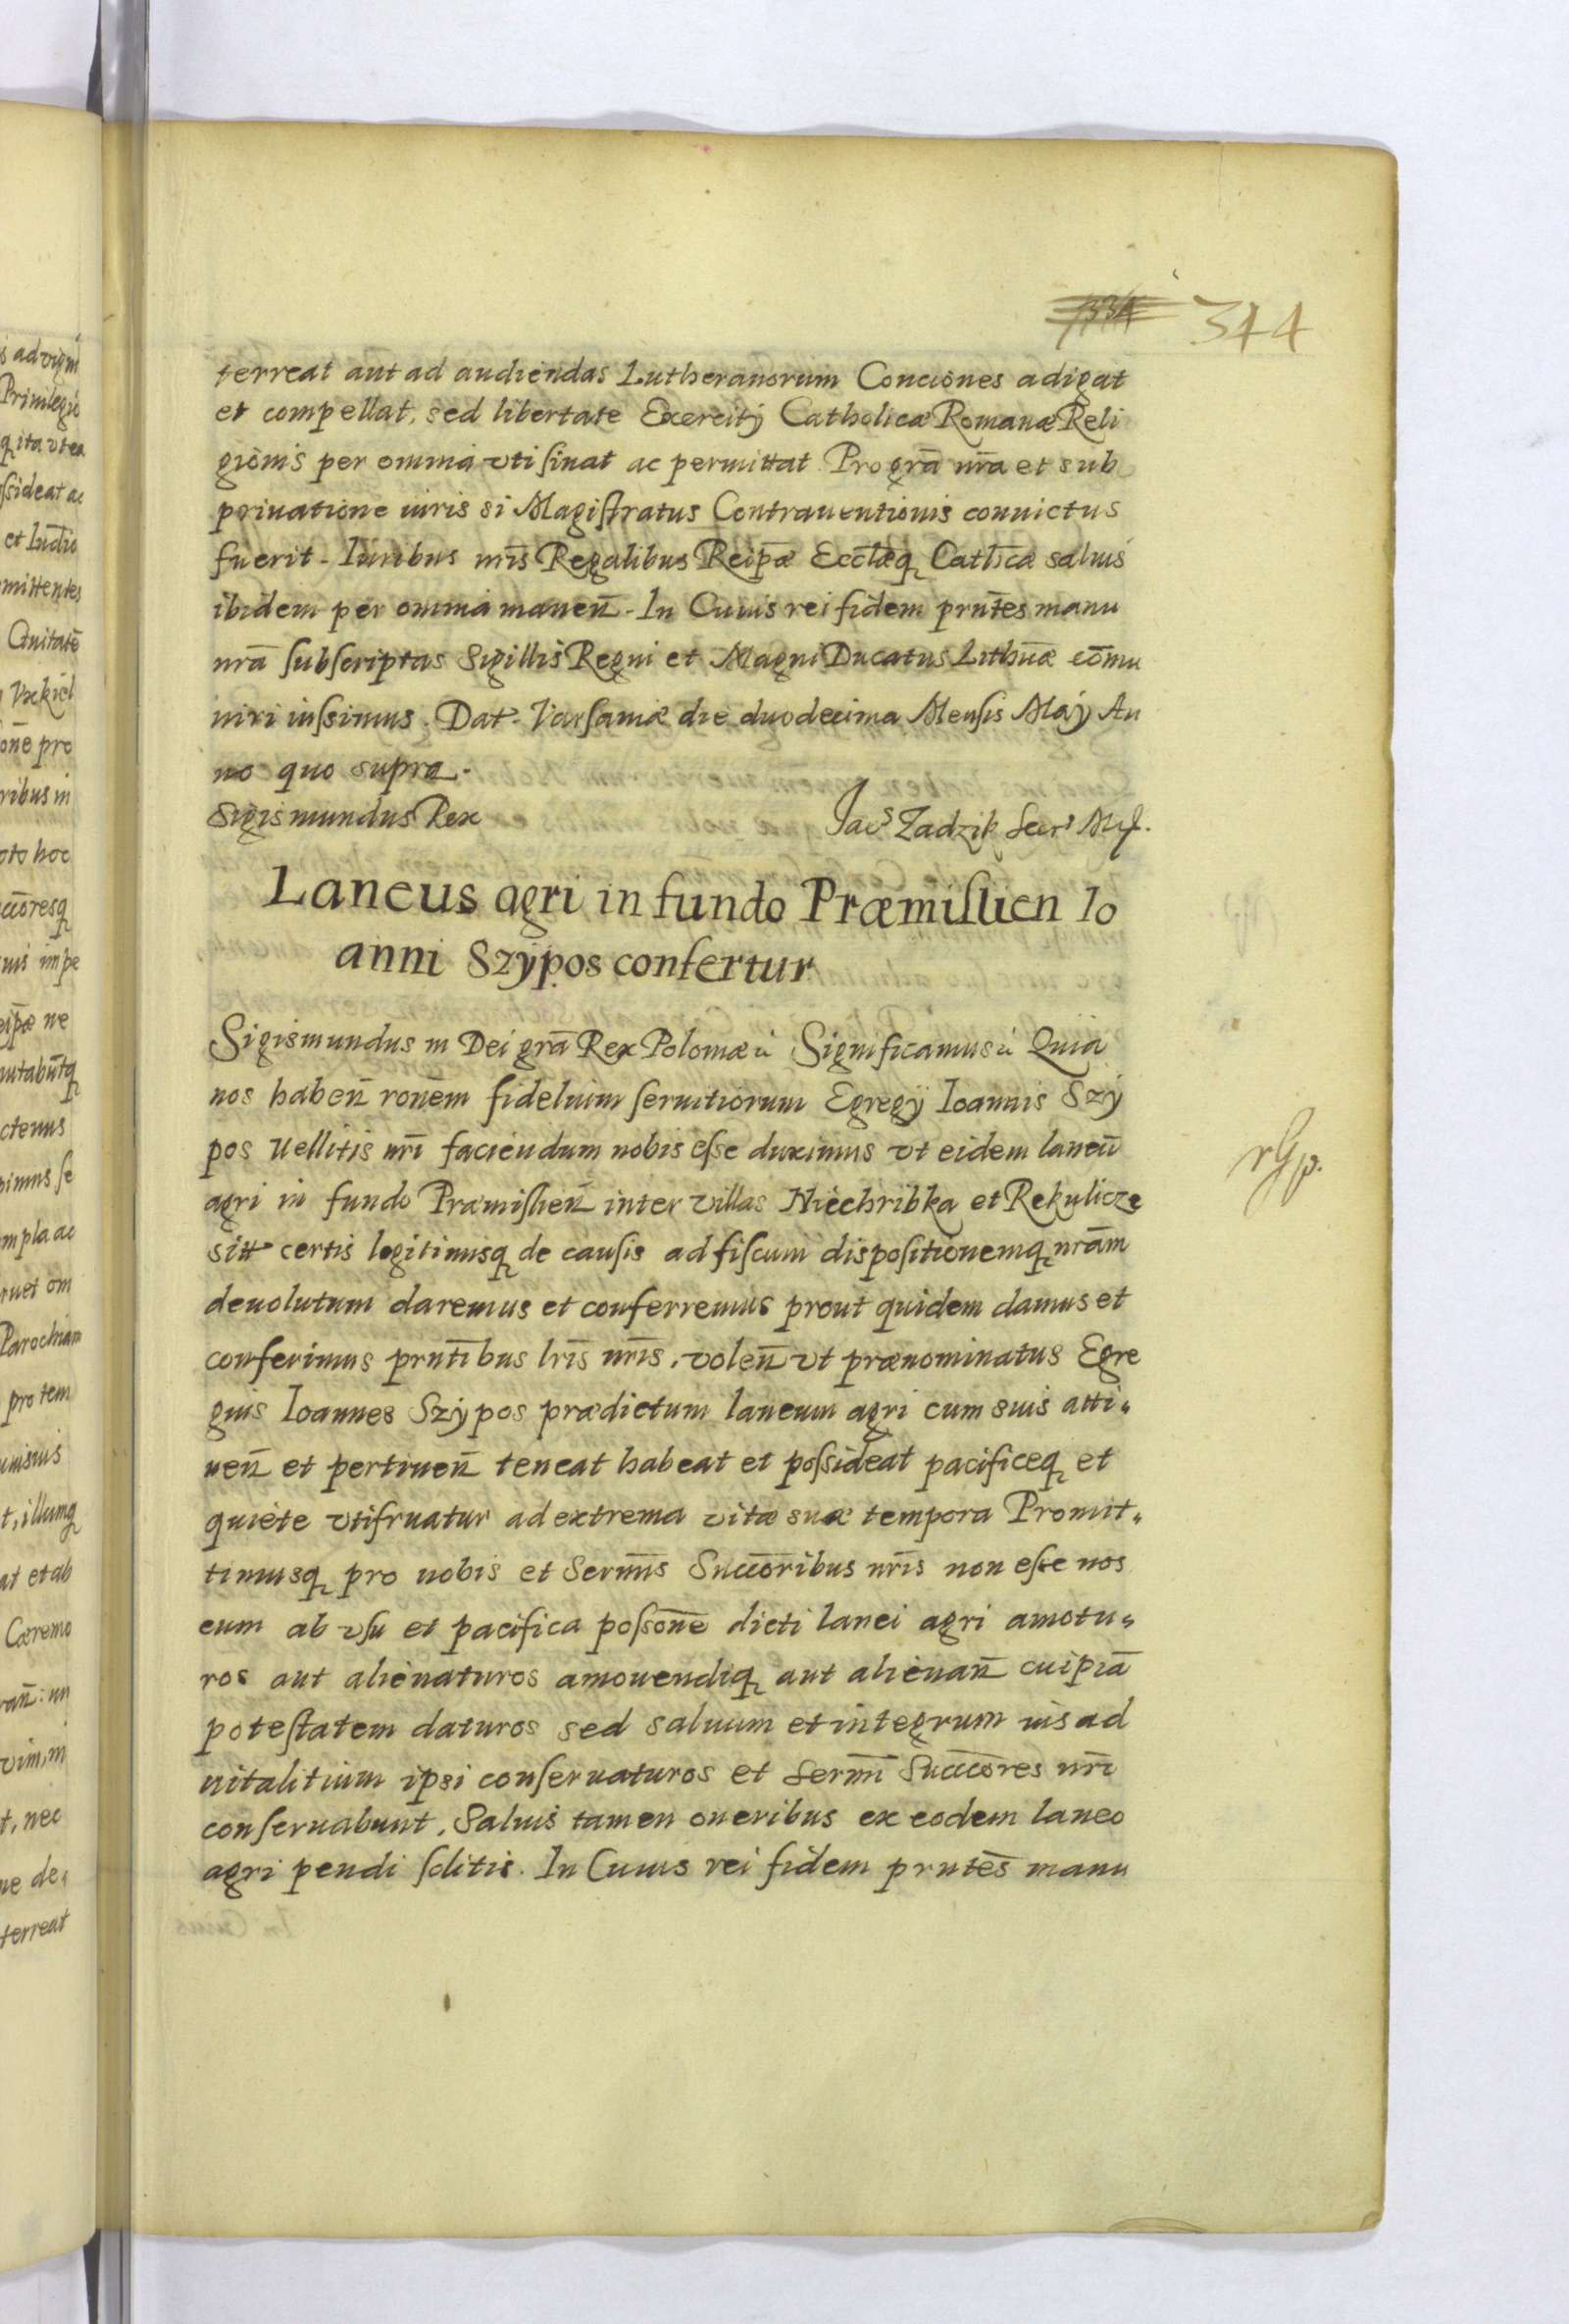 344
terreat aut ad audiendas Lutheranorum Conciones adigat
et compellat, sed libertate Exercitÿ Catholicæ Romanæ Reli
gionis per omnia vti sinat ac permittat Pro grã nrã et sub
priuatione iuris si Magistratus Contrauentionis conuictus
fuerit. Iuribus nrĩs Regalibus Reipæ Eccłæq Cathcæ saluis
ibidem per omnia manen̄. In Cuius rei fidem prñtes manu
nrã subscriptas Sigillis Regni et Magni Ducatus Lithuæ com̄u
niri iussimus. Dat. Varsauiæ die duodecima Mensis Maÿ An
no quo supra.
Sigismundus Rex Iac⁹ Zadzik Secr⁹
Laneus agri in fundo Præmislien Io
anni Szÿpos confertur
Sigismundus III Dei grã Rex Poloniæ ũ Significamus ũ Quia
nos haben̄ ronẽm fidelium seruitiorum Egregÿ Ioannis Szÿ
pos Vellitis nrĩ faciendum nobis esse duximus vt eidem laneũ
agri in fundo Præmislien̄ inter villas Niechribka et Rekulicze
sitt certis legitimisq de causis ad fiscum dispositionemq nrãm
deuolutum daremus et conferremus prout quidem damus et
conferimus prñtibus lrĩs nrĩs, volen̄ vt prænominatus Egre
gius Ioannes Szÿpos prædictum laneum agri cum suis atti„
nen̄ et pertinen̄ teneat habeat et possideat pacificeq et
quiete vtifruatur ad extrema vitæ suæ tempora Promit„
timusq pro nobis et Serm̄is Succõribus nrĩs non esse nos
eum ab vsu et pacifica possone̅ dicti lanei agri amotu„
ros aut alienaturos amouendiq aut alienan̄ cuipiã
potestatem daturos sed saluum et integrum ius ad
uitalitium ipsi conseruaturos et Serm̄i Succcõres nrĩ
conseruabunt. Saluis tamen oneribus ex eodem laneo
agri pendi solitis. In Cuius rei fidem prñtes manu